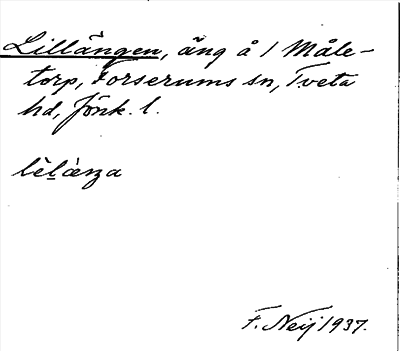 Lillängen, äng å / Måle-
torp, Forserums sn, Tveta
hd, Jönk. l.
F. Neij 1937.